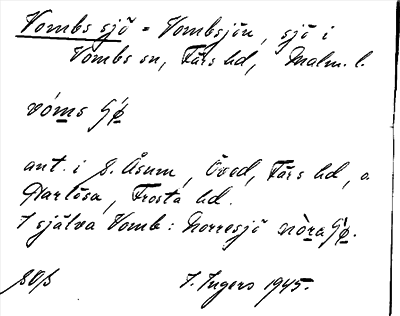 Vombs sjö = Vombsjön, sjö i
Vombs sn, Färs hd, Malm. l.
vóms
ant. i S. Åsum, Öved, Färs hd, o.
Harlösa, Frosta hd.
I själva Vomb: Norresjö nòra
J. Ingers 1945.